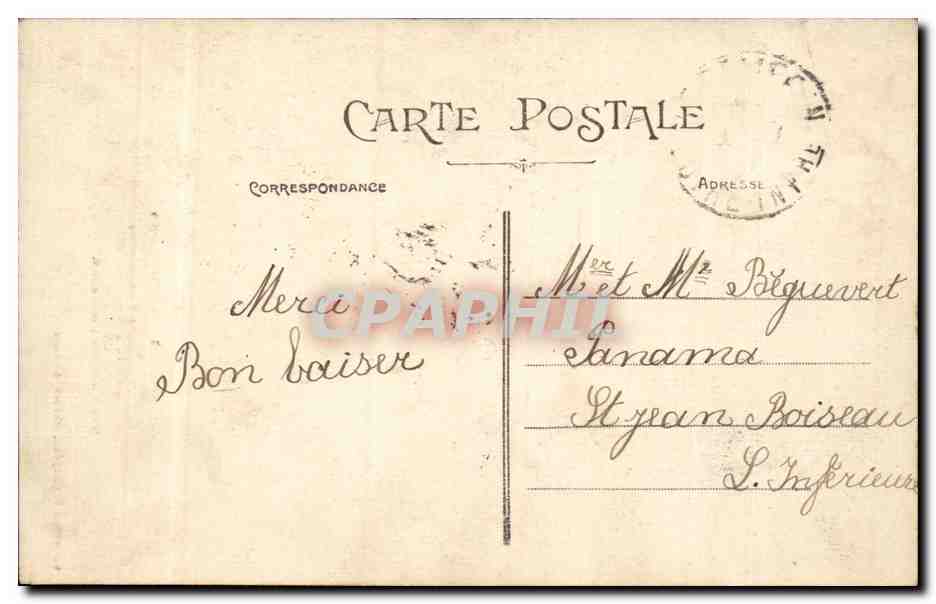 CARTE POSTALE
CORRESPONDANCE
ADRESSE
Merci
Bon baiser
Mer et Me Béguevert
Panama
St jean Boiseau
L. Inférieure
CPAPHIL